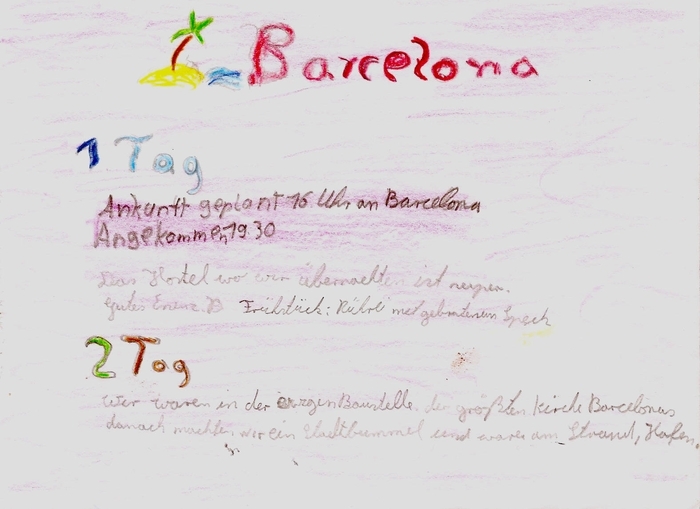 Barcelona
1 Tag
Ankunft geplant 16 Uhr an Barcelona
Angekommen 19.30
Das Hostel wo wir übernachten ist
gutes Frühstück: Rührei met gebratenem Speck
2 Tag
Wir waren in der ewigen Baustelle. der größten Kirche Barcelonas
danach machten wir ein Stadtbummel und waren am Strand, Hafen.